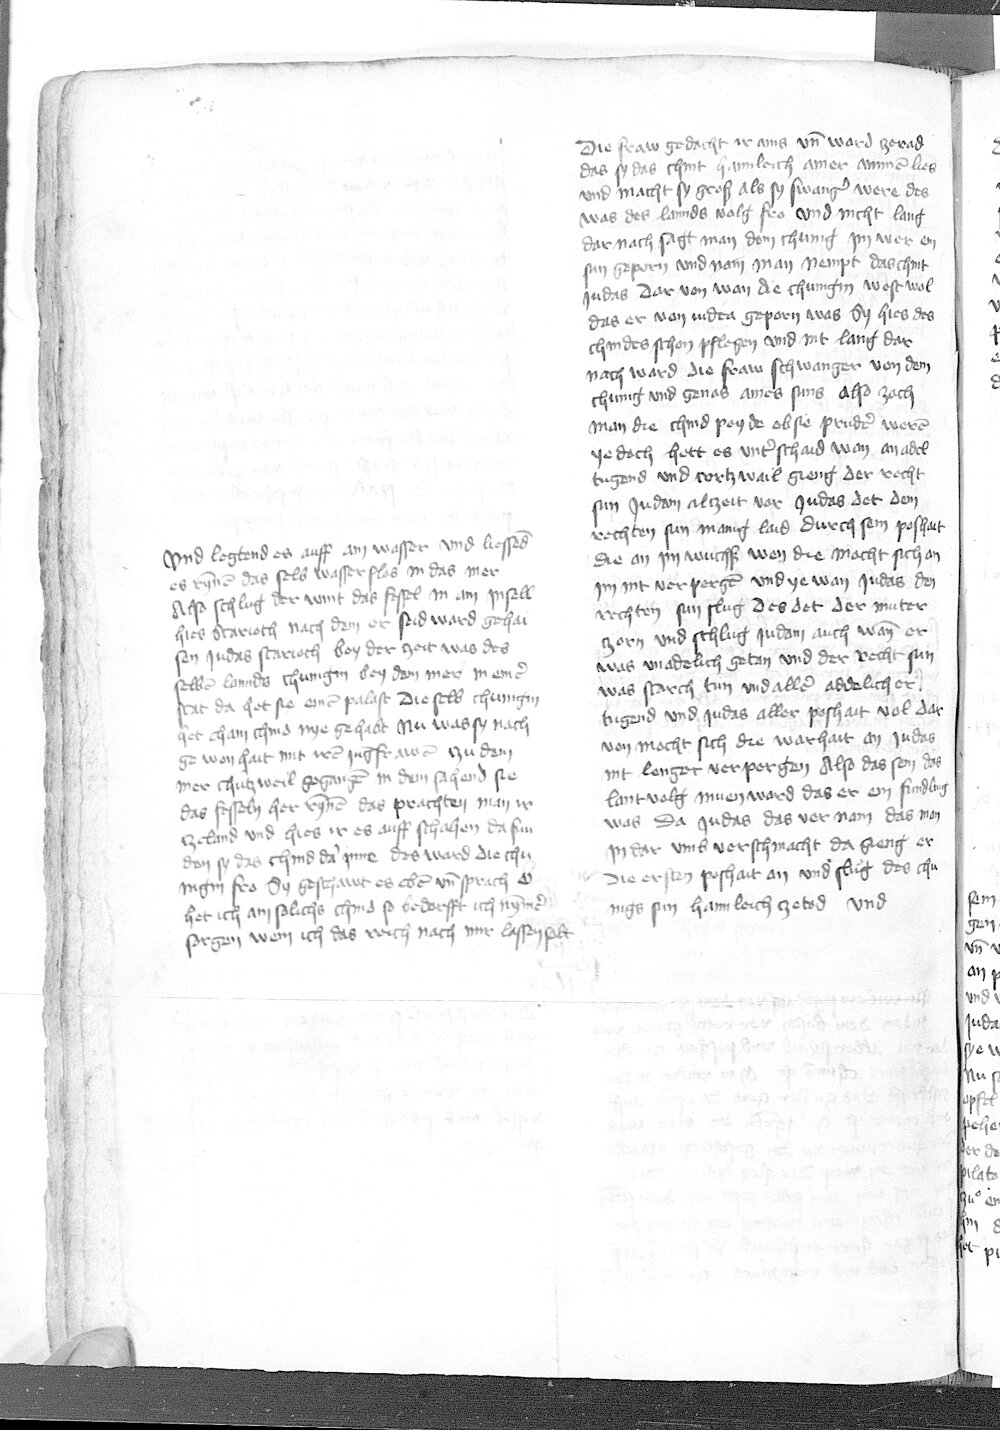 Vnd legtend es auff ain wasser vnd liessed
es rynnē das selb wasser flos in das mer
Also schlug der wint das fessel in ain Insell
hies Scarioth nach dem er seid ward gehai
sen Judas scarioth bey der zeit was des
selbē lannds chunigin bey dem mer in einer
stat da het sie einē palast Die selb chunigin
het chain chind nye gehabt Nu was sy nach
ge wonhait mit irē Jugfrawē zu dem
mer churtzweil gegangē in dem sahend sie
das fesseln her rynnē das prachten man ir
tzeland vnd hies ir es auff schahen da fun
den sy das chind dar inne des ward die chu
nigin fro Sy geschawt es ebē vn̄ sprach O
het ich ain solichs chind so bedorfft ich nymer
sorgen wem ich das reich nach mir lassen solt
Die fraw gedacht ir ains vn̄ ward zerad
das sy das chint hainleich ainer ammē lies
vnd macht sy groß als sy swanger were des
was des lannds volg fro vnd nicht lang
dar nach sagt man dem chunig Im wer en
sun geporn vnd nam man Nempt das chint
Judas Dar von wan die chunigin west wol
das er von iudea geporn was Sy hies des
chindes schon pflegen vnd nit lang dar
nach ward die fraw schwanger von dem
chunig vnd genas aines suns Also zoch
man die chind peyde ob sie pruder werē
ye doch hett es vnterschaid wan an adel
tugend vnd cortzwail gieng der recht
sun Judam alczeit vor Judas det dem
rechten sun manig laid durch sein poshait
die an im wuechß wen die mocht sich an
im nit verpergē vnd ye wan Judas den
rechten sun slug Des det der muter
zorn vnd schlug Judam auch wan̄ er
was vnadelich getan vnd der recht sun
was starch tun vnd aller addelicher
tugend vnd Judas aller poshait vol dar
von mocht sich die warhait an Judas
nit lenger verpergen Also das sein das
lantvolg innen ward das er ein fundling
was Da Judas das ver nam das man
In dar vmb verschmacht da gieng er
die ersten poshait an vnd slug des chu
nigs sun hainleich zetod vnd